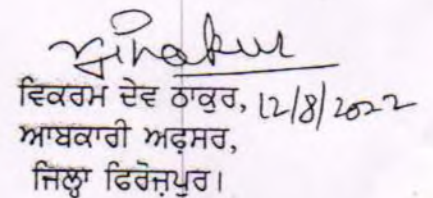 ਵਿਕਰਮ ਦੇਵ ਠਾਕੁਰ, 12/8/2022
ਆਬਕਾਰੀ ਅਫ਼ਸਰ,
ਜਿਲ੍ਹਾ ਫਿਰੋਜ਼ਪੁਰ।